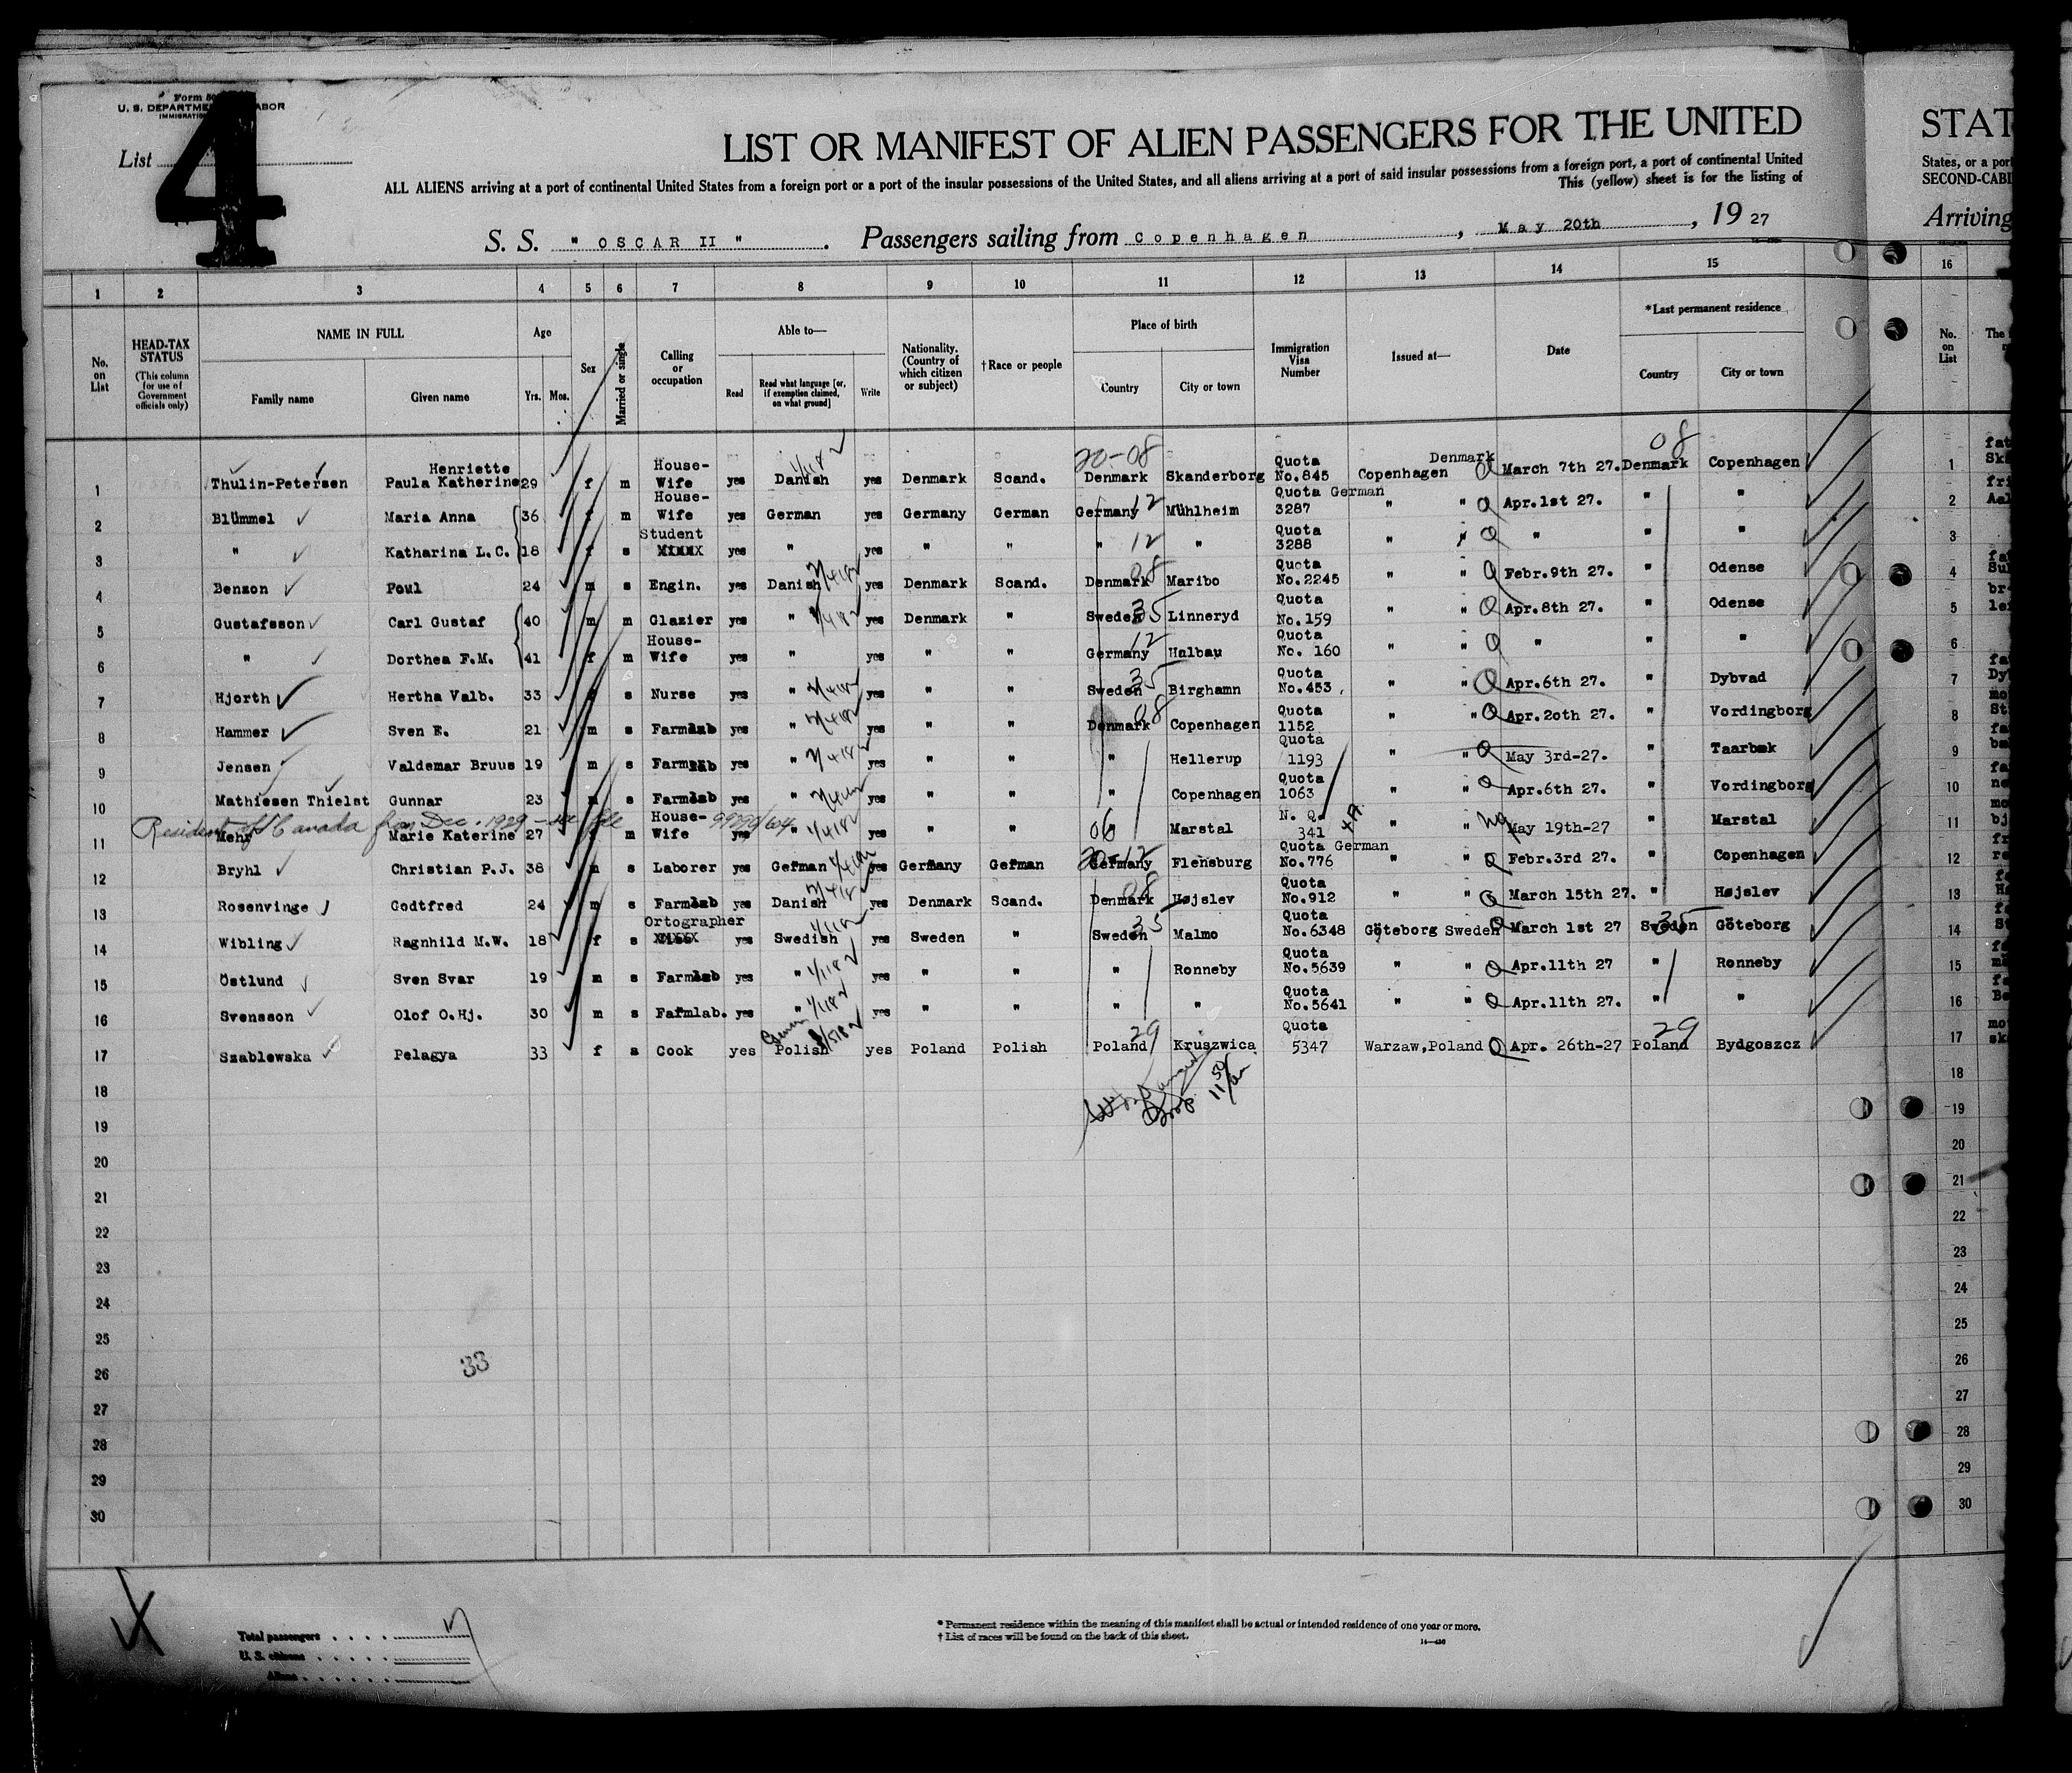 Form 50
U. S. DEPARTME ABOR
IMMIGRATIO
List
4
LIST OR MANIFEST OF ALIEN PASSENGERS FOR THE UNITED
ALL ALIENS arriving at a port of continental United States from a foreign port or a port of the insular possessions of the United States, and all aliens arriving at a port of said insular possessions from a foreign port, a port of continental United
This (yellow) sheet is for the listing of
S. S. " OSCAR II " . Passengers sailing from Copenhagen , May 20th , 19 27
STAT
States, or a port
SECOND-CABI
Arriving
1 2 3 4 5 6 7 8 9 10 11 12 13 14 15 16
No. on List
HEAD-TAX STATUS (This column for use of Government officials only)
NAME IN FULL Family name Given name
Age Yrs. Mos.
Sex
Married or single
Calling or occupation
Able to— Read Read what language [or, if exemption claimed, on what ground] Write
Nationality. (Country of which citizen or subject)
†Race or people
Place of birth Country City or town
Immigration Visa Number
Issued at—
Date
*Last permanent residence Country City or town
No. on List
1 Thulin-Petersen Henriette Paula Katherine 29 f m House-Wife yes Danish yes Denmark Scand. Denmark Skanderborg Quota No.845 Copenhagen Denmark March 7th 27. Denmark Copenhagen 1
2 Blümmel Maria Anna 36 f m House-Wife yes German yes Germany German Germany Mühlheim Quota German 3287 " " Apr.1st 27. " " 2
3 " Katharina L.C. 18 f s Student yes " yes " " " " Quota 3288 " " " " " 3
4 Benzon Poul 24 m s Engin. yes Danish yes Denmark Scand. Denmark Maribo Quota No.2245 " " Febr.9th 27. " Odense 4
5 Gustafsson Carl Gustaf 40 m m Glazier yes " yes Denmark " Sweden Linneryd Quota No.159 " " Apr.8th 27. " Odense 5
6 " Dorthea F.M. 41 f m House-Wife yes " yes " " Germany Halbau Quota No. 160 " " " " " 6
7 Hjorth Hertha Valb. 33 f s Nurse yes " yes " " Sweden Birghamn Quota No.453 " " Apr.6th 27. " Dybvad 7
8 Hammer Sven E. 21 m s Farmlab yes " yes " " Denmark Copenhagen Quota 1152 " " Apr.20th 27. " Vordingborg 8
9 Jensen Valdemar Bruus 19 m s Farmlab yes " yes " " " Hellerup Quota 1193 " " May 3rd-27. " Taarbæk 9
10 Mathiesen Thielst Gunnar 23 m s Farmlab yes " yes " " " Copenhagen Quota 1063 " " Apr.6th 27. " Vordingborg 10
Resident of Canada from Dec. 1929
11 Mehr Marie Katerine 27 f m House-Wife yes " yes " " " Marstal N. Q. 341 " " May 19th-27 " Marstal 11
12 Bryhl Christian P.J. 38 m s Laborer yes German yes Germany German Germany Flensburg Quota German No.776 " " Febr.3rd 27. " Copenhagen 12
13 Rosenvinge Godtfred 24 m s Farmlab yes Danish yes Denmark Scand. Denmark Højslev Quota No.912 " " March 15th 27. " Højslev 13
14 Wibling Ragnhild M.W. 18 f s Ortographer yes Swedish yes Sweden " Sweden Malmo Quota No.6348 Göteborg Sweden March 1st 27 Sweden Göteborg 14
15 Östlund Sven Svar 19 m s Farmlab yes " yes " " " Ronneby Quota No.5639 " " Apr.11th 27 " Ronneby 15
16 Svensson Olof O.Hj. 30 m s Farmlab. yes " yes " " " " Quota No.5641 " " Apr.11th 27. " " 16
17 Szablewska Pelagya 33 f s Cook yes Polish yes Poland Polish Poland Kruszwica Quota 5347 Warzaw,Poland Apr. 26th-27 Poland Bydgoszcz 17
18 18
19 19
20 20
21 21
22 22
23 23
24 24
25 25
26 33 26
27 27
28 28
29 29
30 30
Total passengers . . . . 17
U. S. citizens . . . . .
Aliens . . . . . .
* Permanent residence within the meaning of this manifest shall be actual or intended residence of one year or more.
† List of races will be found on the back of this sheet.
14—430